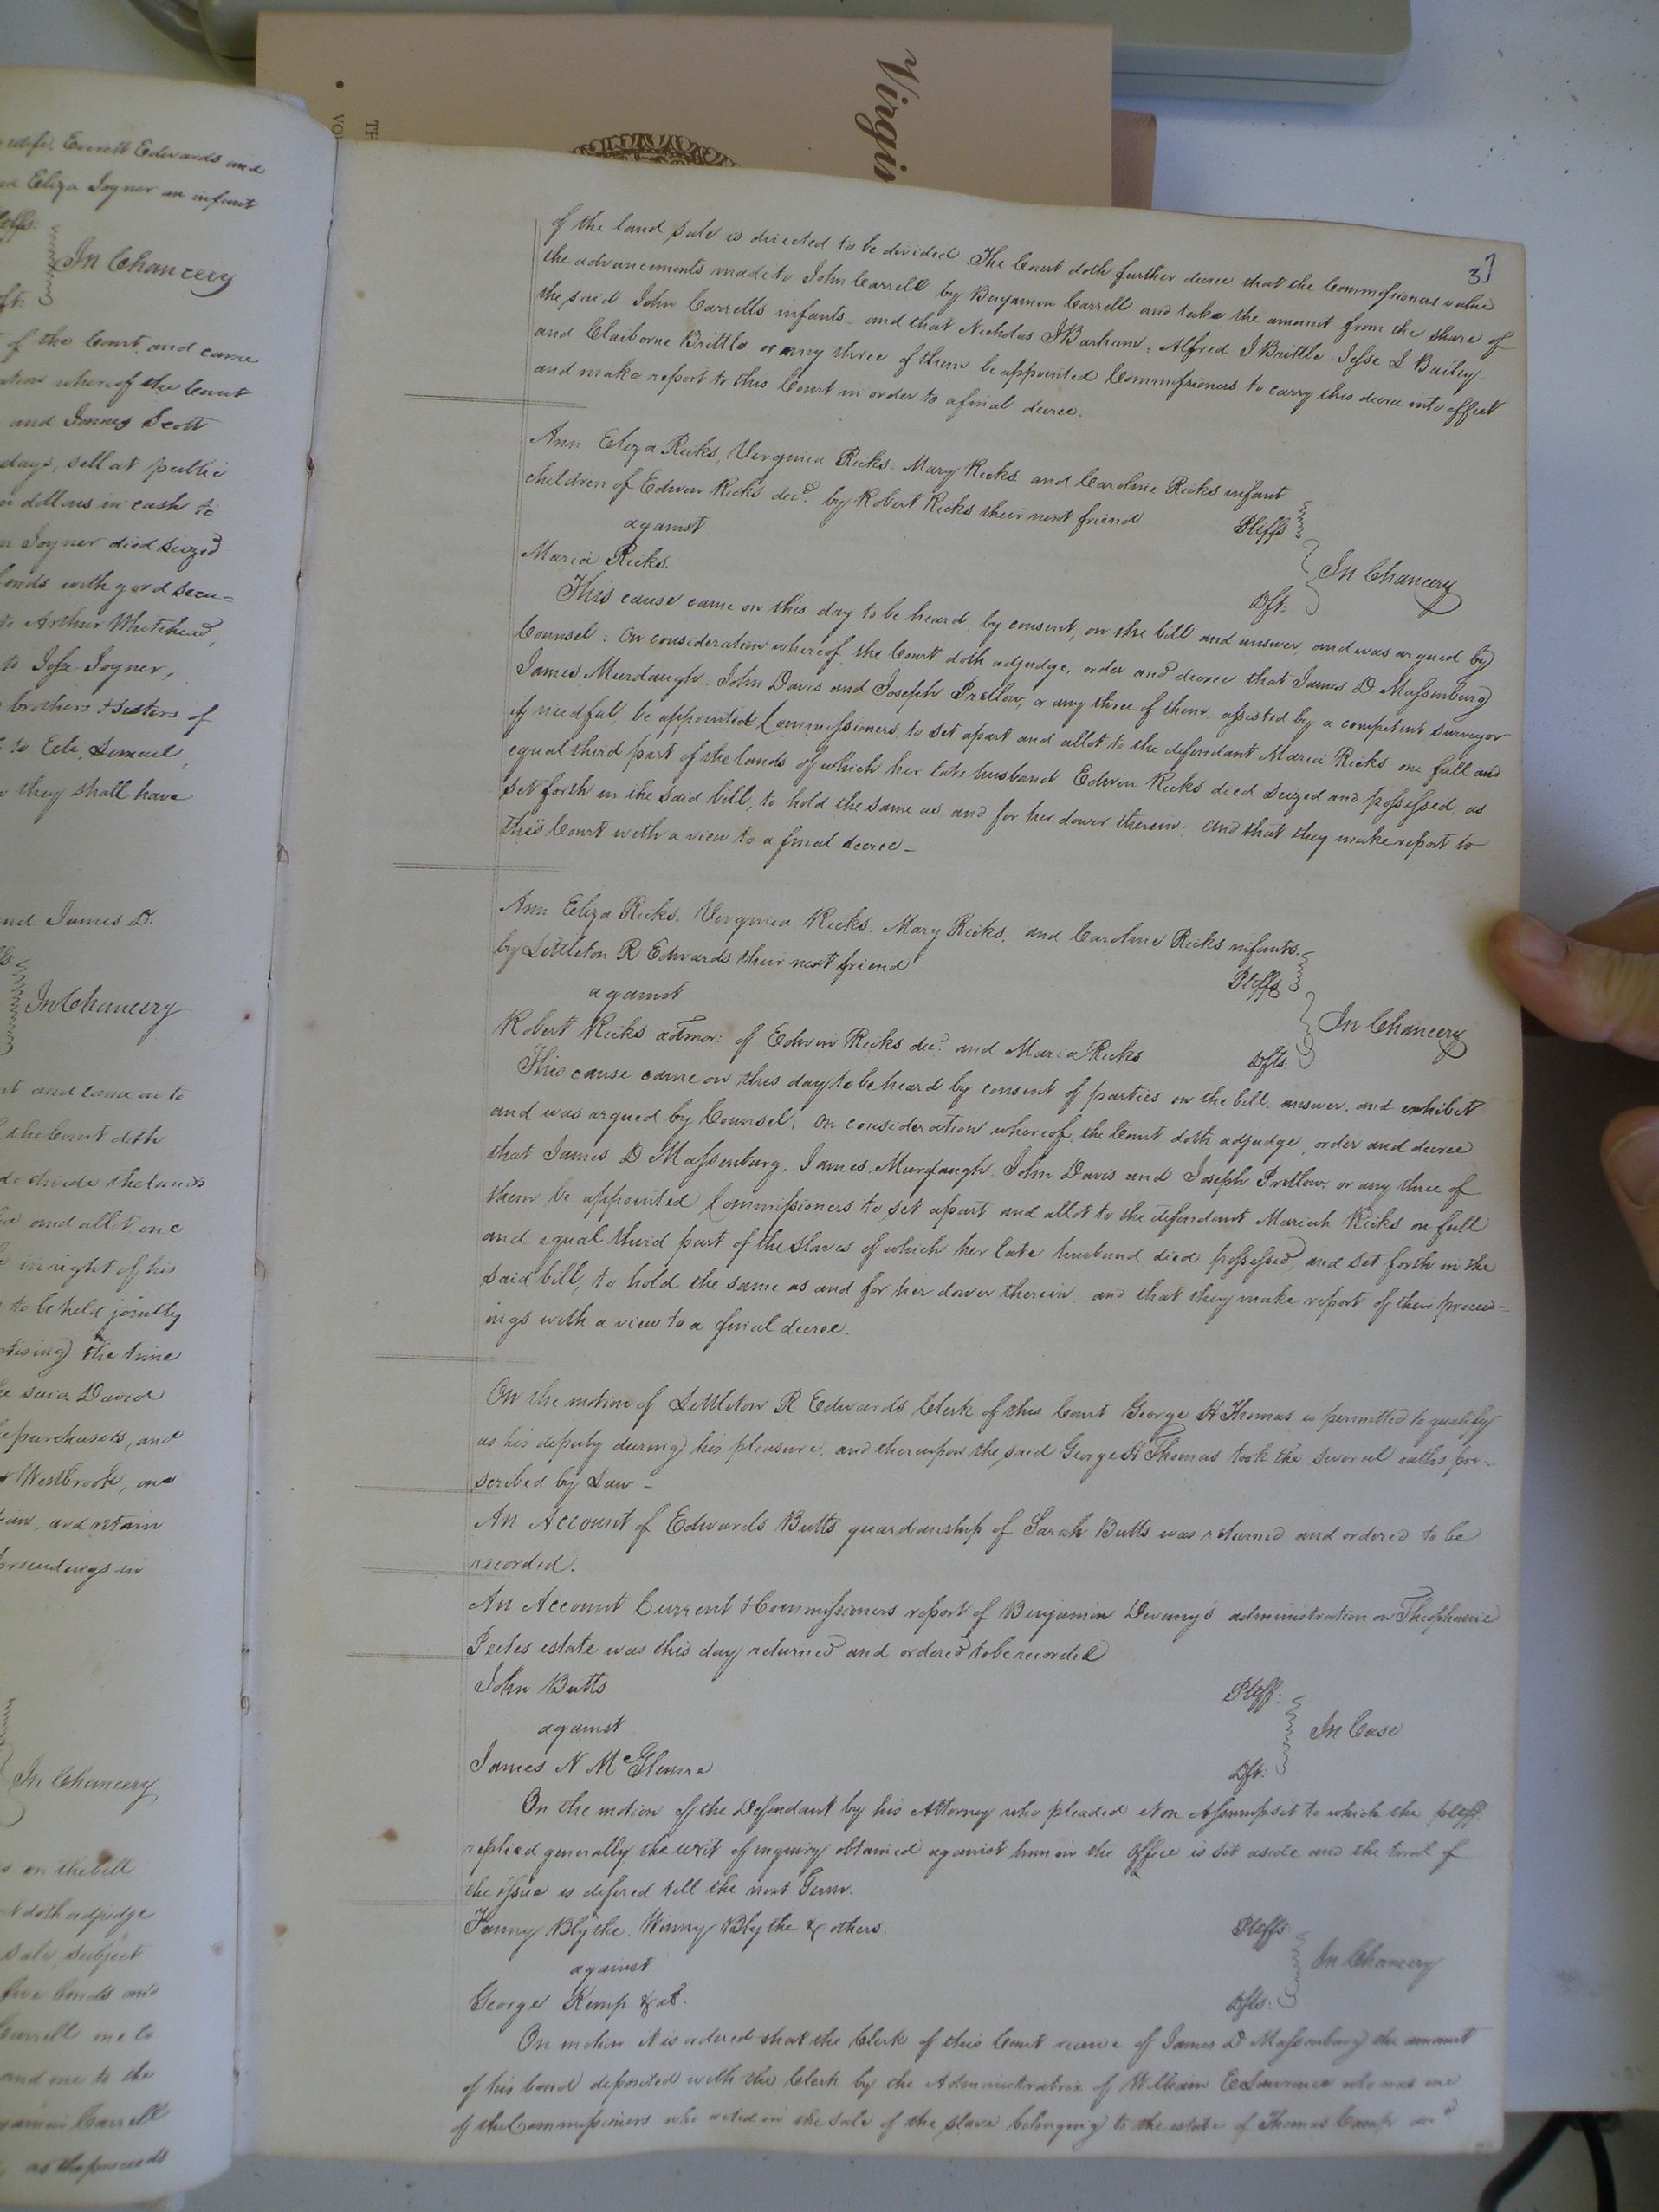 Virgin
TH
VO
wife, Everett Edwards and
Eliza Joyner an infant
Plffs.
In Chancery
of the Court and came
whereof the Court
and James Scott
days, sell at public
dollars in cash to
Joyner died seized
bonds with good secu=
to Arthur Whitehead,
to Jesse Joyner,
brothers & sisters of
to Eli, Lemuel,
they shall have
and James D.
In Chancery
and came on to
the Court doth
divide the lands
and allot one
in right of his
to be held jointly
the time
said David
purchasers, and
Westbrook, one
and retain
proceedings in
In Chancery
on the bill
doth adjudge
sale, subject
five bonds and
Carrell one to
and one to the
Carrell
as the proceeds
3]
of the land sale is directed to be divided The Court doth further decree that the Commissioners value
the advancements made to John Carrell by Benjamin Carrell and take the amount from the share of
the said John Carrells infants - and that Nicholas J Barham, Alfred J Brittle. Jesse L Bailey
and Claiborne Brittle or any three of them be appointed Commissioners to carry this decree into effect
and make report to this Court in order to a final decree.
Ann Eliza Ricks, Virginia Ricks. Mary Ricks and Caroline Ricks infant
children of Edwin Ricks decd. by Robert Ricks their next friend Plffs
against
In Chancery
Maria Ricks. Dft:
This cause came on this day to be heard by consent, on the bill and answer, and was argued by
Counsel: On consideration whereof the Court doth adjudge, order and decree that James D Massenburg
James Murdaugh. John Davis and Joseph Pretlow, or any three of them, assisted by a competent surveyor
if needful, be appointed Commissioners, to set apart and allot to the defendant Maria Ricks one full and
equal third part of the lands of which her late husband Edwin Ricks died seized and possessed, as
set forth in the said bill, to hold the same as and for her dower therein; and that they make report to
this Court with a view to a final decree -
Ann Eliza Ricks. Virginia Ricks. Mary Ricks. and Caroline Ricks infants
by Littleton R Edwards their next friend Plffs
against
In Chancery
Robert Ricks admor: of Edwin Ricks decd. and Maria Ricks Dfts.
This cause came on this day to be heard by consent of parties on the bill, answer, and exhibit
and was argued by Counsel. On consideration whereof, the Court doth adjudge, order and decree
that James D Massenburg, James Murdaugh. John Davis and Joseph Pretlow, or any three of
them be appointed Commissioners to set apart and allot to the defendant Mariah Ricks on full
and equal third part of the slaves of which her late husband died possessed, and set forth in the
said bill, to hold the same as and for her dower therein and that they make report of their proceed-
ings with a view to a final decree.
On the motion of Littleton R Edwards Clerk of this Court George H Thomas is permitted to qualify
as his deputy during his pleasure. and thereupon the said George H Thomas took the several oaths pre-
scribed by Law -
An Account of Edwards Butts guardianship of Sarah Butts was returned and ordered to be
recorded.
An Account Current & Commissioners report of Benjamin Devany's administration on Theophanie
Peetes estate was this day returned and ordered to be recorded
John Butts Plff:
against In Case
James N McGlemre Dft:
On the motion of the Defendant by his Attorney who pleaded Non Assumpsit to which the plff.
replied generally, the writ of inquiry obtained against him in the office is set aside and the trial of
the issue is defered till the next Term.
Fanny Blythe. Winny Blythe & others. Plffs
against In Chancery
George Kemp & al. Dfts:
On motion it is ordered that the Clerk of this Court receive of James D Massenburg the amount
of his bond deposited with the Clerk by the Administratrix of William E Lawrence who was one
of the Commissioners who acted in the sale of the slave belonging to the estate of Thomas Camp decd